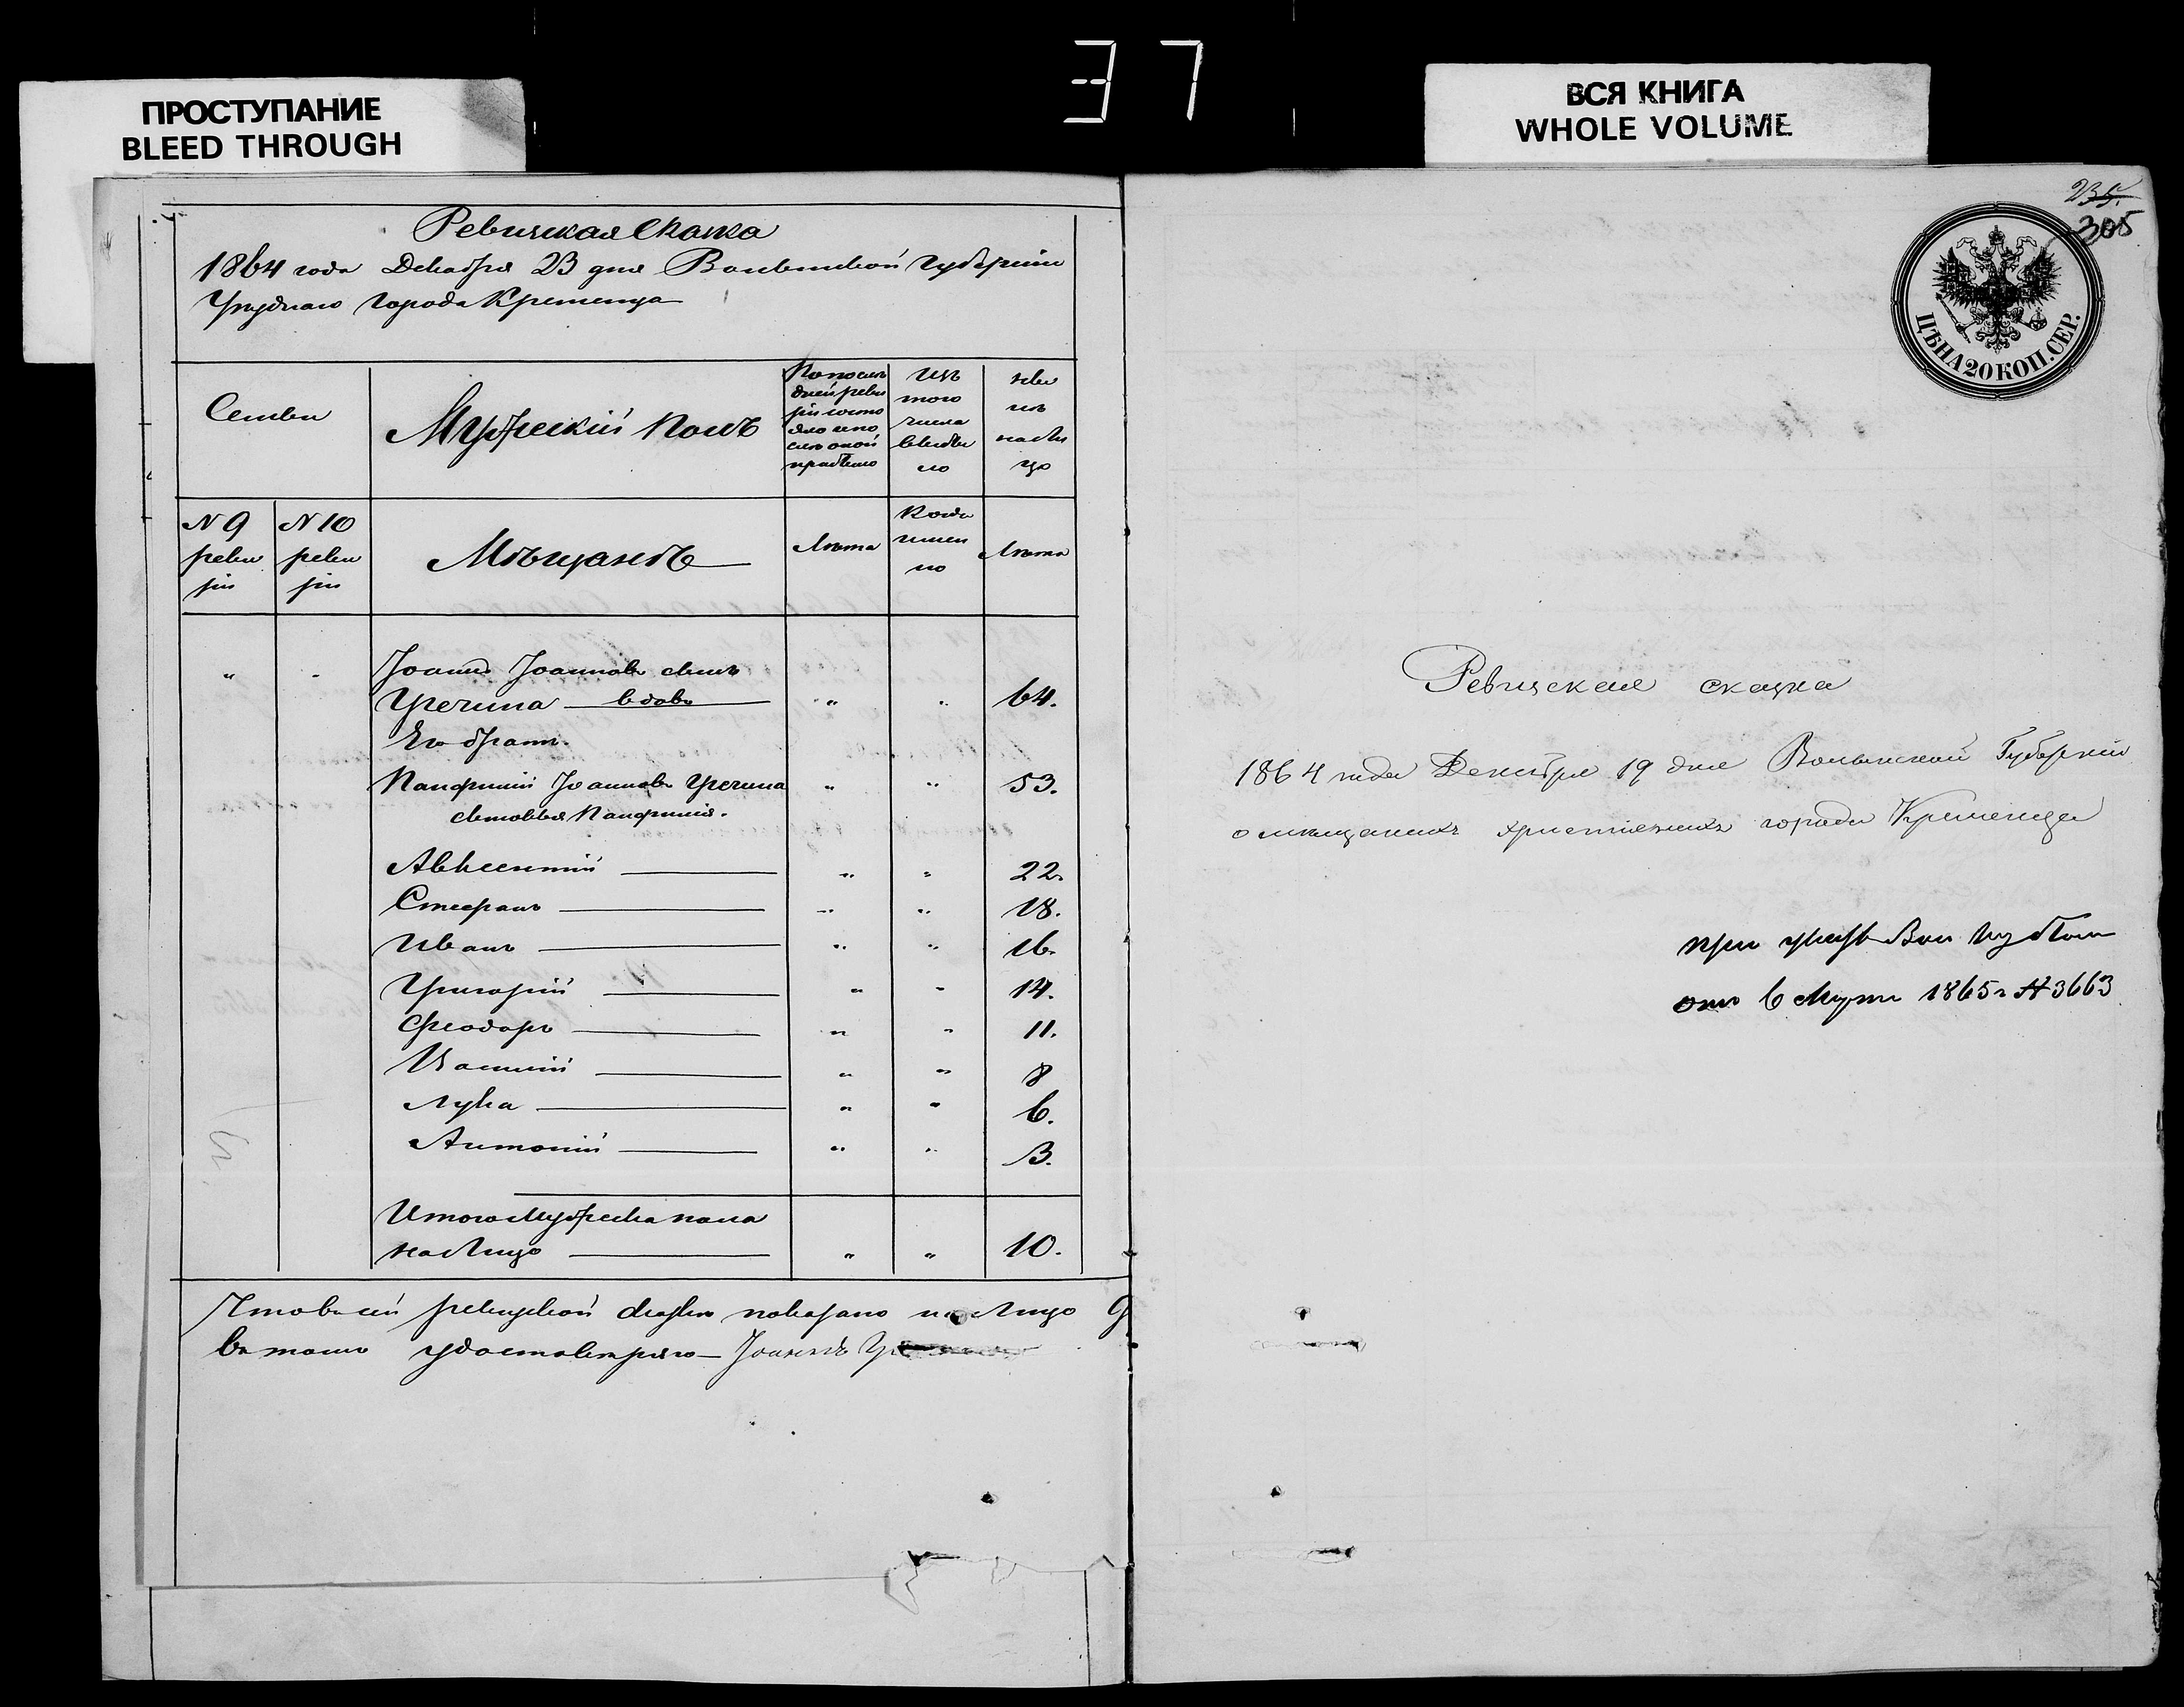 ПРОСТУПАНИЕ
BLEED THROUGH
37
ВСЯ КНИГА
WHOLE VOLUME
Ревизская Сказка
1864 года Декабря 23 дня Волынской Губерніи
Уѣзднаго Города Кременца
Семьи
Мужескій Полъ
По послѣ
дней реви
зіи состо
яло и по
слѣ оной
прибыло
Изъ
того
числа
выбы
ло
нынѣ
на ли
цо
N 9
реви
зіи
N 10
реви
зіи
Мѣщанъ
Лѣта
Когда
имен
но
Лѣта
Іоаннъ Іоанновъ сынъ
Гречина вдовъ 64.
Его братъ.
Іоанновъ Гречина 53.
сыновья
Авксентій 22.
Стефанъ 18.
Иванъ 16.
Григорій 14.
Феодоръ 11.
8
Лука 6.
Антоній 3.
Итого Мужеска пола
на Лицо 10.
Что въ сей ревизской сказкѣ показано на Лицо
въ томъ удостовѣряю Іоаннъ
235.
305
ЦѢНА 20 КОП. СЕР.
Ревизская сказка
1864 года Декабря 19 дня Волынской Губерніи
о мѣщанахъ христіянахъ города Кременца
при
отъ 6 Марта 1865 г N 3663